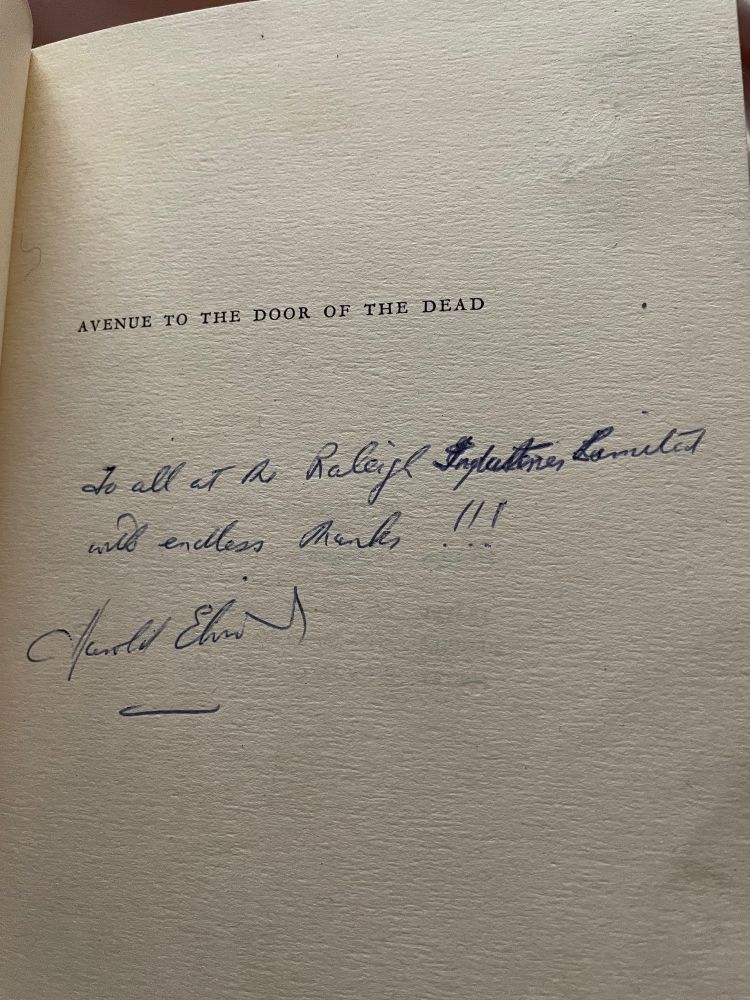 AVENUE TO THE DOOR OF THE DEAD
To all at the Raleigh Industries Limited
with endless thanks !!!
Harold Elvin